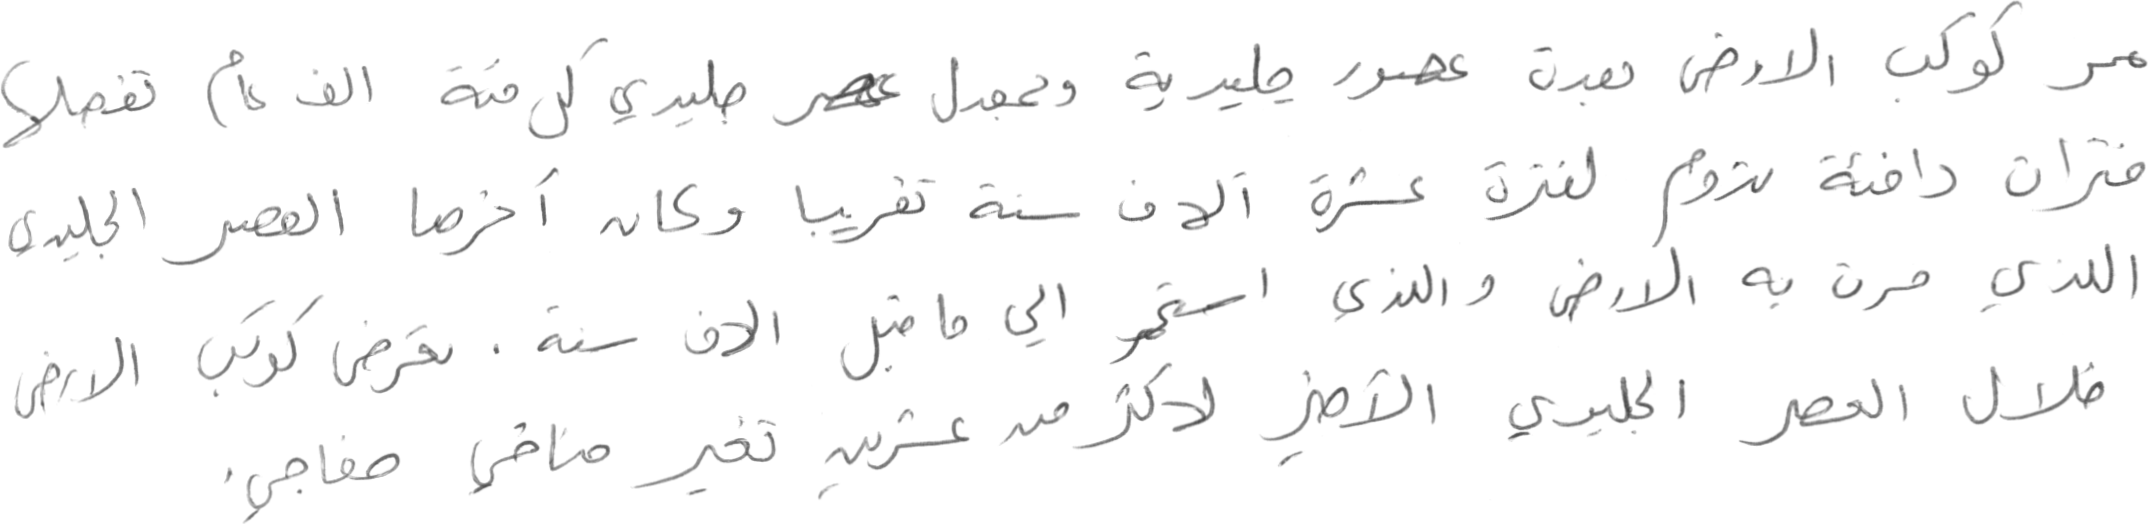 مر كوكب الارض بعدة عصور جليدية وبمعدل عصر جليدي كل مئة الف عام تفصلها
فترات دافئة تدوم لفترة عشرة آلاف سنة تقريبا وكان آخرها العصر الجليدي
اللذي مرت به الارض واللذي استمر الي ما قبل الاف سنة . تعرض كوكب الارض
خلال العصر الجليدي الآخير لاكثر من عشرين تغير مناخي مفاجيء